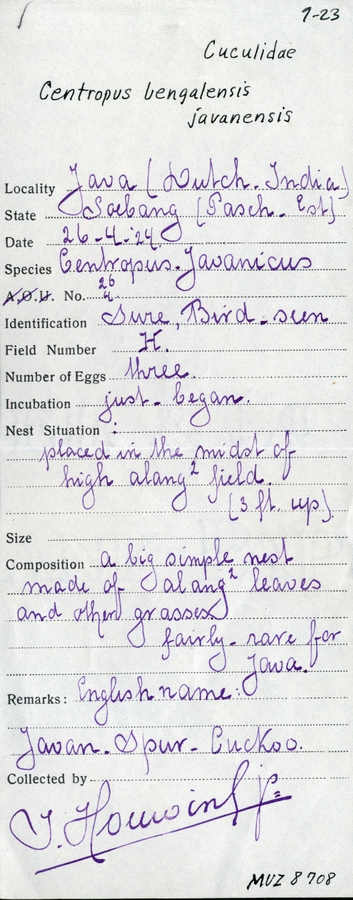 9-23
Cuculidae
Centropus bengalensis
javanensis
Locality Java (Dutch. India)
State Soebang (Pasch. Est)
Date 26-4.'24.
Species Centropus. Javanicus
A.O.U. No. 26/4
Identification Sure, Bird-seen
Field Number H.
Number of Eggs three.
Incubation just-began.
Nest Situation :
placed in the midst of
high alang² field.
(3 ft. up).
Size
Composition a big simple nest
made of alang² leaves
and other grasses
fairly-rare for
Java.
Remarks: English name:
Javan. Spur-Cuckoo.
Collected by
MVZ 8708